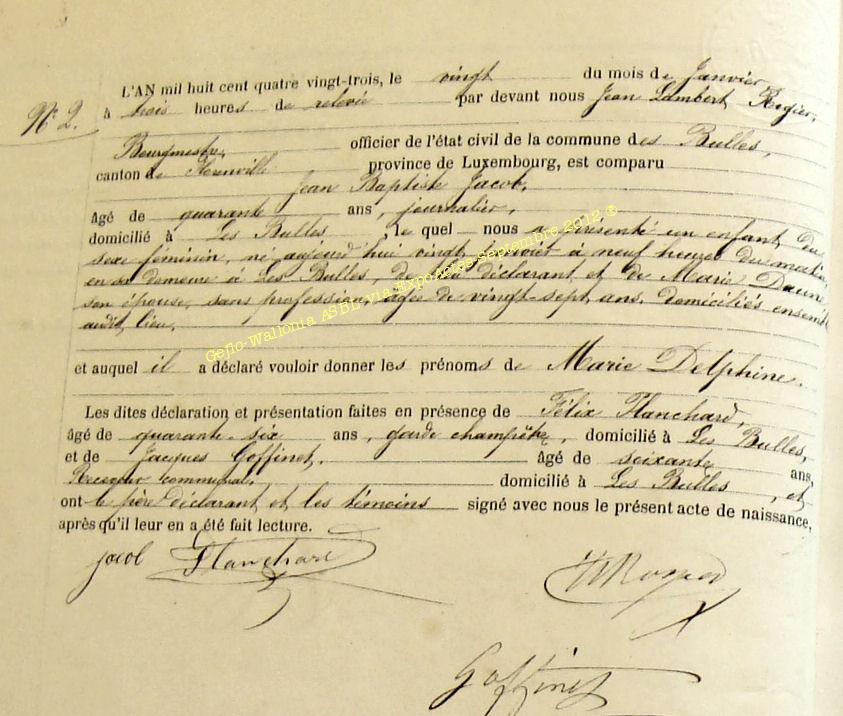 L'AN mil huit cent quatre vingt-trois, le vingt du mois de Janvier,
N° 2. à trois heures de relevée par devant nous Jean Lambert Rogier,
Bourgmestre, officier de l'état civil de la commune des Bulles,
canton de Florenville province de Luxembourg, est comparu
Jean Baptiste Jacob,
âgé de quarante ans, journalier,
domicilié à Les Bulles, le quel nous a présenté un enfant du
sexe féminin, né aujourd'hui vingt janvier à neuf heures du matin
en sa demeure à Les Bulles, de lui déclarant et de Marie
son épouse, sans profession, agée de vingt-sept ans, domiciliés ensemble
audit lieu,
et auquel il a déclaré vouloir donner les prénoms de Marie Delphine.
Les dites déclaration et présentation faites en présence de Félix Planchard,
âgé de quarante-six ans, garde champêtre, domicilié à Les Bulles,
et de Jacques Goffinet, âgé de soixante ans,
Receveur communal, domicilié à Les Bulles, et
ont le père déclarant et les témoins signé avec nous le présent acte de naissance,
après qu'il leur en a été fait lecture.
Jacob Planchard
Goffinet
Geflo-Wallonia ASBL via Expoactes-Septembre 2012 ®